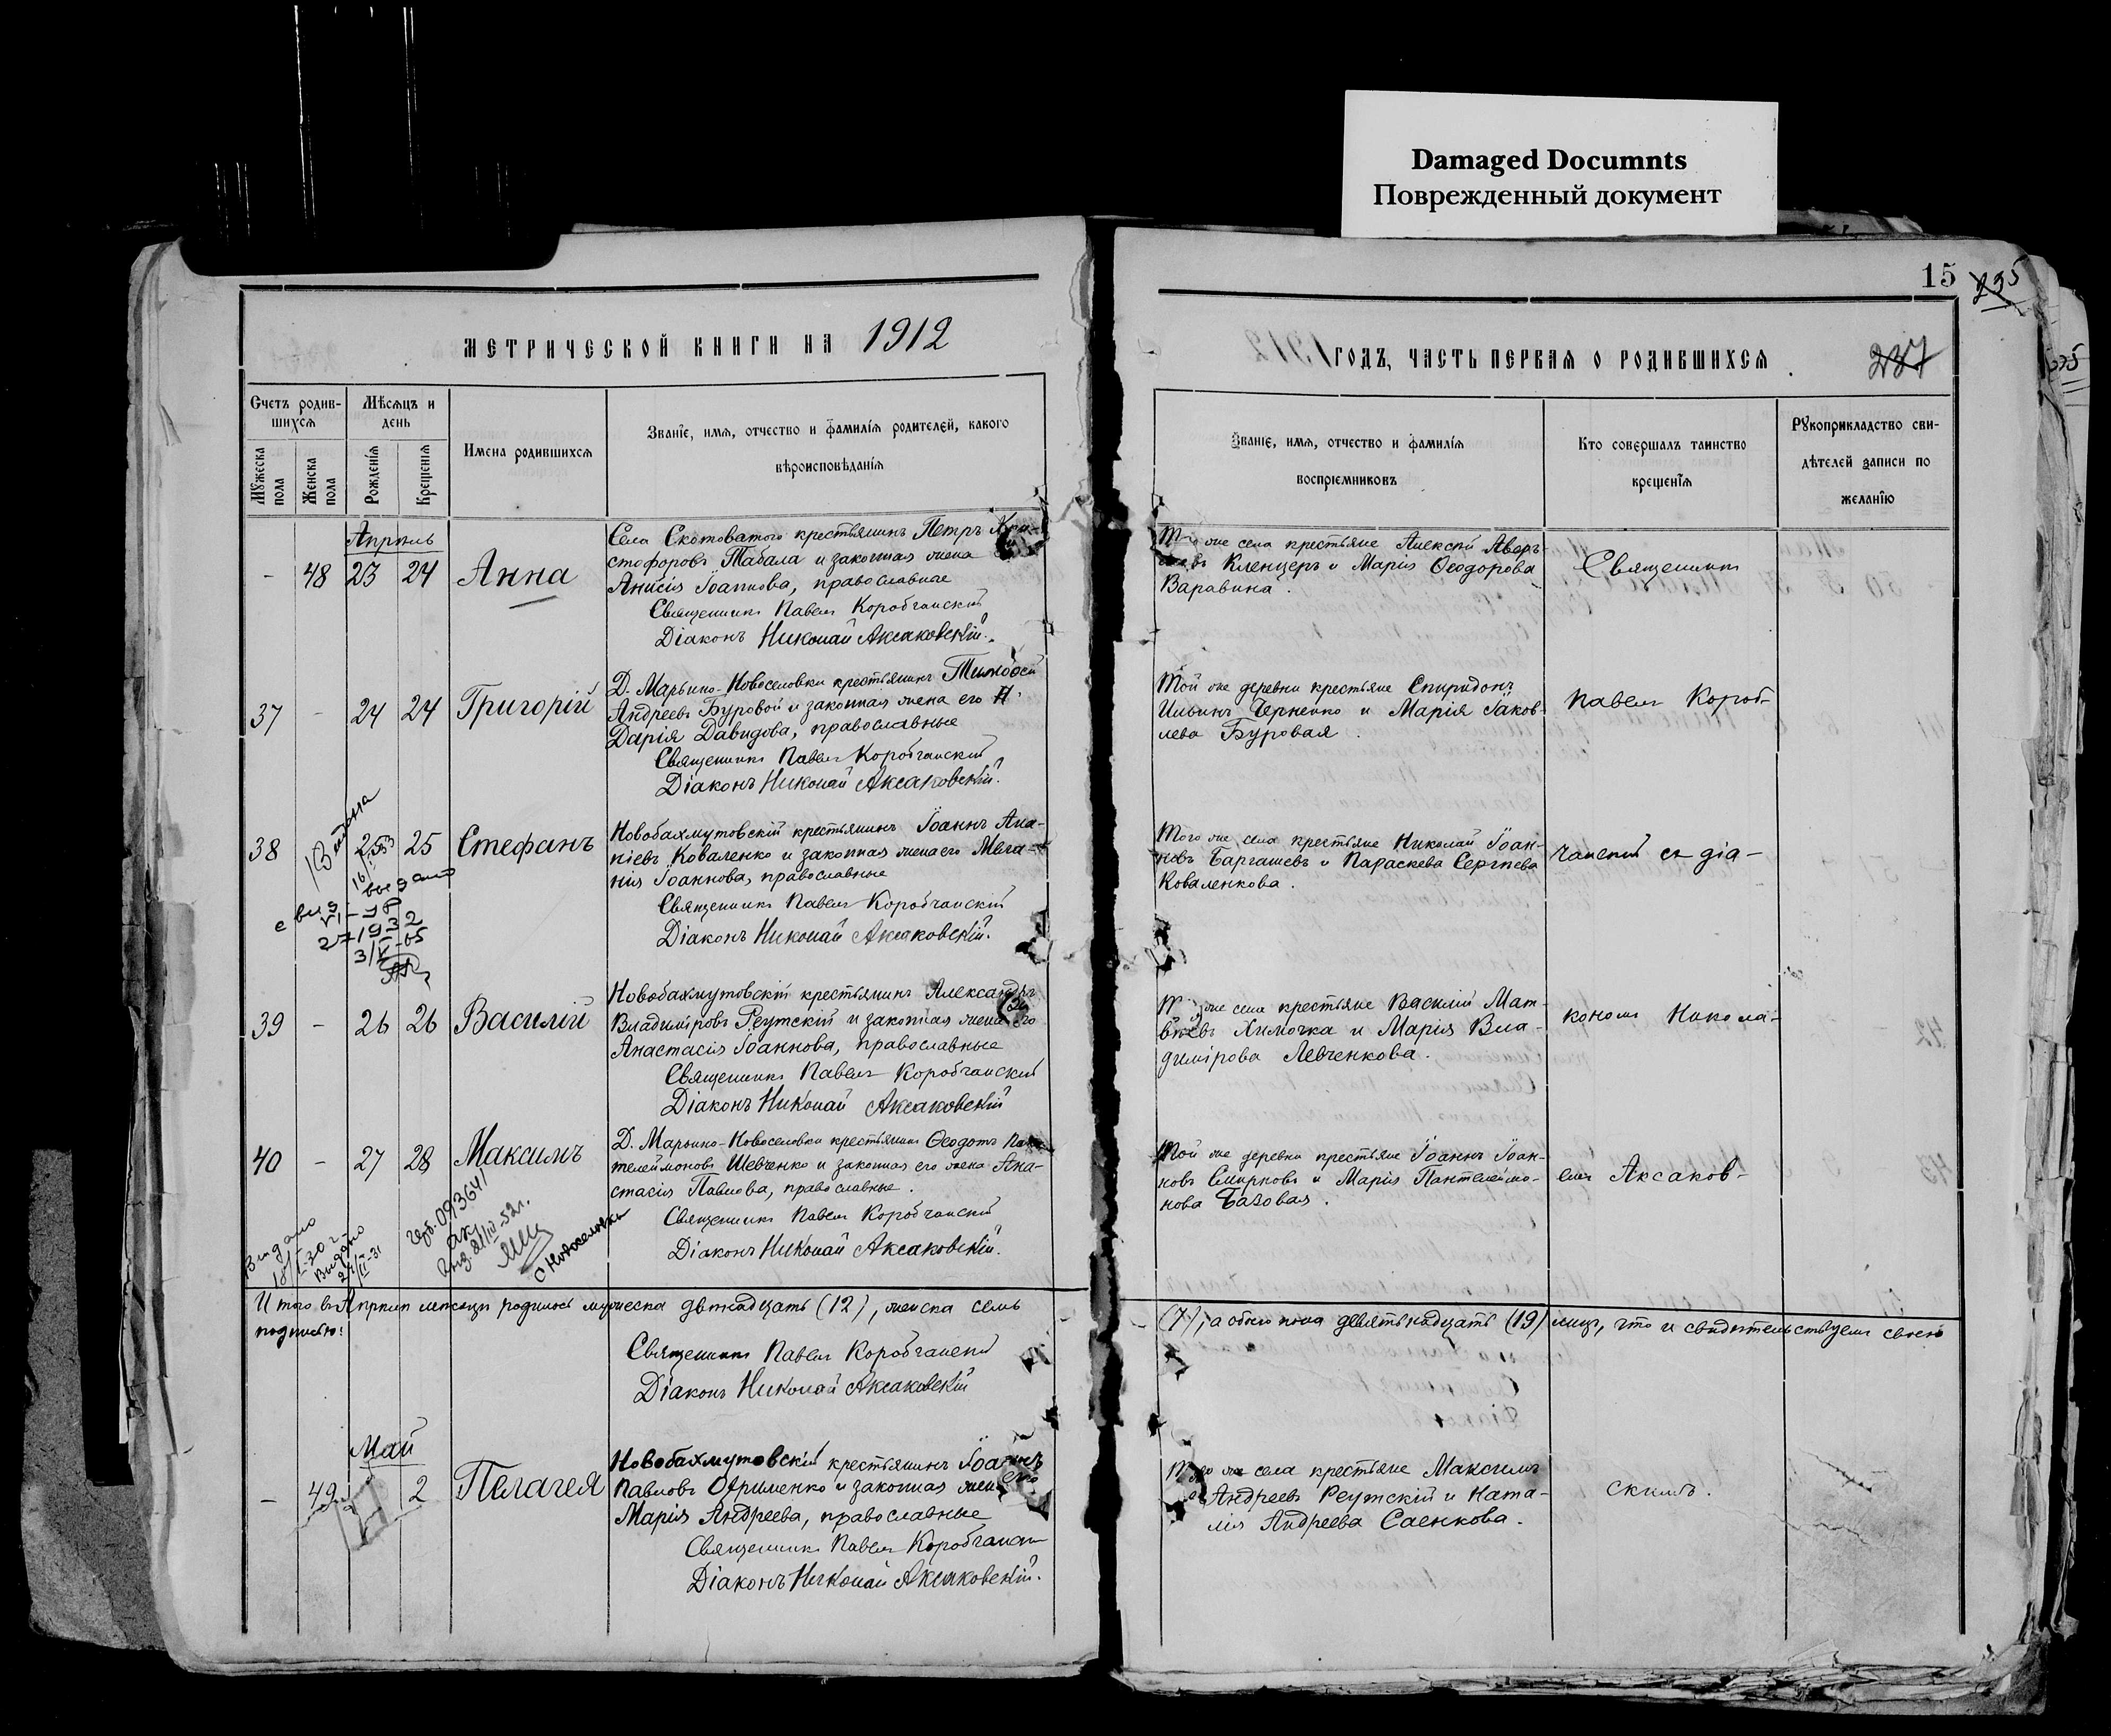 Damaged Documnts
Поврежденный документ
15
235
237
МЕТРИЧЕСКОЙ КНИГИ НА 1912
ГОДЪ, ЧАСТЬ ПЕРВАЯ О РОДИВШИХСЯ
Счетъ родив-
шихся
Мѣсяцъ и
день
Мужеска
пола
Женска
пола
Рожденія
Крещенія
Имена родившихся
Званіе, имя, отчество и фамилія родителей, какого
вѣроисповѣданія
Званіе, имя, отчество и фамилія
воспріемниковъ
Кто совершалъ таинство
крещенія
Рукоприкладство сви-
дѣтелей записи по
желанію
Апрѣль
- 48 23 24 Анна
Села Скотоватого крестьянинъ Петръ Хри-
стофоровъ Табала и законная жена
Анисія Іоаннова, православные
Священникъ Павелъ Коробчанскій
Діаконъ Николай Аксаковскій.
Того же села крестьяне Алексѣй
Кленцеръ и Марія Ѳеодорова
Варавина.
Священникъ
37 - 24 24 Григорій
Д. Марьино-Новоселовки крестьянинъ Тимоѳей
Андреевъ Буровой и законная жена его
Дарія Давидова, православные
Священникъ Павелъ Коробчанскій
Діаконъ Николай Аксаковскій.
Той же деревни крестьяне Спиридонъ
Ильинъ Черненко и Марія Іаков-
лева Буровая.
Павелъ Короб-
38 25 25 Стефанъ
Новобахмутовскій крестьянинъ Іоаннъ Ана-
ніевъ Коваленко и законная жена его Мела-
нія Іоаннова, православные
Священникъ Павелъ Коробчанскій
Діаконъ Николай Аксаковскій.
Того же села крестьяне Николай Іоан-
новъ Баргашевъ и Параскева Сергѣева
Коваленкова.
чанскій съ діа-
39 - 26 26 Василій
Новобахмутовскій крестьянинъ Александръ
Владиміровъ Реутскій и законная жена его
Анастасія Іоаннова, православные
Священникъ Павелъ Коробчанскій
Діаконъ Николай Аксаковскій
Того же села крестьяне Василій Мат-
вѣевъ Химочка и Марія Вла-
димірова Левченкова.
кономъ Никола-
40 - 27 28 Максимъ
Д. Марьино-Новоселовки крестьянинъ Ѳеодотъ Пан-
телеймоновъ Шевченко и законная его жена Ана-
стасія Павлова, православные.
Священникъ Павелъ Коробчанскій
Діаконъ Николай Аксаковскій.
Той же деревни крестьяне Іоаннъ Іоан-
новъ Смирновъ и Марія Пантелеймо-
нова Базовая.
емъ Аксаков-
Видано
Видано
с Новоселовка
Итого въ Апрѣлѣ мѣсяцѣ родилось мужеска двѣнадцать (12), женска семь
(7), а обоего пола девятьнадцать (19) лицъ, что и свидѣтельствуемъ своею
подписью:
Священникъ Павелъ Коробчанскій
Діаконъ Николай Аксаковскій
Май
- 49 2 Пелагея
Новобахмутовскій крестьянинъ Іоаннъ
Павловъ Охрименко и законная жена его
Марія Андреева, православные
Священникъ Павелъ Коробчанскій
Діаконъ Николай Аксаковскій.
Того же села крестьяне Максимъ
Андреевъ Реутскій и Ната-
лія Андреева Саенкова.
скимъ.